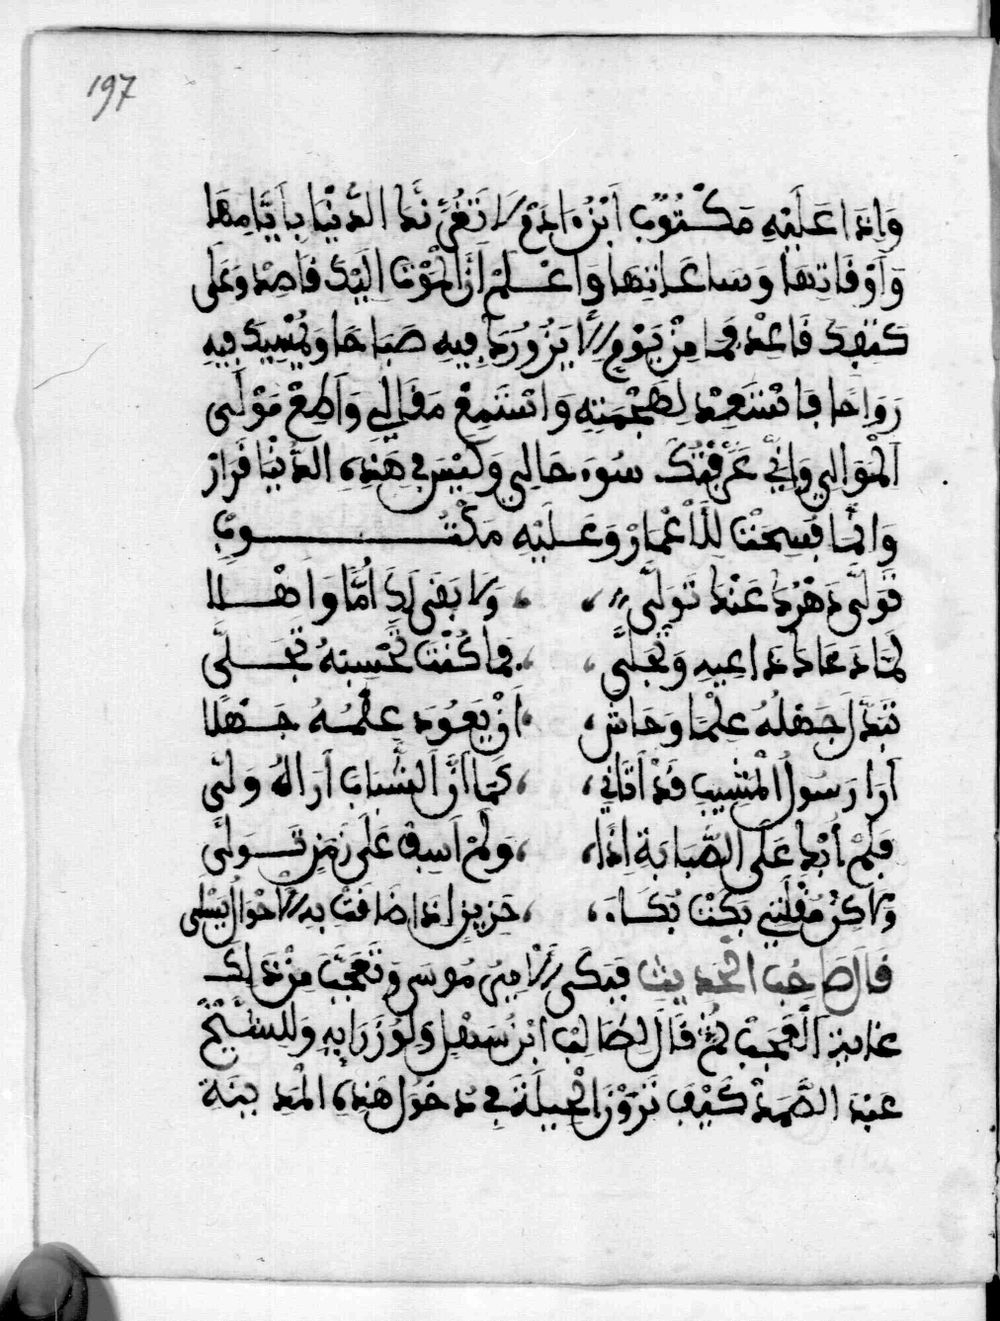 197
وَإِذَا عَلَيْهِ مَكْتُوبٌ اَبْنُ ءَادَمَ لَا تَغُرَّنَّكَ الدُّنْيَا بِأَيَّامِهَا
وَأَوْقَاتِهَا وَسَاعَاتِهَا وَاعْلَمْ أَنَّ الْمَوْتَ إِلَيْكَ قَاصِدٌ وَعَلَى
كَتِفِكَ قَاعِدٌ فَمَا مِنْ يَوْمٍ إِلَّا يَزُورُكَ فِيهِ صَبَاحًا وَيُمْسِيكَ فِيهِ
رَوَاحًا فَاسْتَعِدْ لِهَجْمَتِهِ وَاسْتَمِعْ مَقَالِي وَأَطِعْ مَوْلَى
الْمَوَالِي وَإِنِّي عَرَّفْتُكَ سُوءَ حَالِي وَلَيْسَ فِي هَذِهِ الدُّنْيَا قَرَارْ
وَإِنَّمَا فُسِحَتْ لِلْأَعْمَارْ وَعَلَيْهِ مَكْتُوبٌ
تَوَلَّى دَهْرُكَ عَنْكَ تَوَلَّى ، ، وَلَا بَقَى لَكَ أُمًّا وَأَهْلَا
لَمَّا دَعَاكَ دَاعِيهِ وَتَجَلَّى ، ، فَمَا كُنْتَ تَحْسِبُهُ تَجَلَّى
تَبَدَّلَ جَهْلُهُ عِلْمًا وَحَاشَ ، ، أَنْ يَعُودَ عِلْمُهُ جَهْلَا
أَرَا رَسُولَ الْمَشِيبِ قَدْ أَتَانِي ، ، كَمَا أَنَّ الشَّبَابَ أَرَاهُ وَلَّى
فَلَمْ أَبْكِ عَلَى الصَّبَابَةِ إِذًا ، ، وَلَمْ آسَفْ عَلَى زَمَنٍ تَوَلَّى
وَلَكِنْ مُقْلَتِي بَكَتْ بُكَاءَ ، ، حَزِينٍ إِذَا ضَاقَتْ بِهِ الْأَحْوَالُ يَسْلَى
قَالَ صَاحِبُ الْحَدِيثِ فَبَكَى الْأَمِيرُ مُوسَى وَتَعَجَّبَ مِنْ ذَلِكَ
غَايَةَ الْعَجَبِ ثُمَّ قَالَ لِطَالِبِ ابْنِ سَهْلٍ وَلِوُزَرَايِهِ وَلِلشَّيْخِ
عَبْدِ الصَّمَدْ كَيْفَ تَرَوْنَ الْحِيلَةَ فِي دُخُولِ هَذِهِ الْمَدِينَةِ